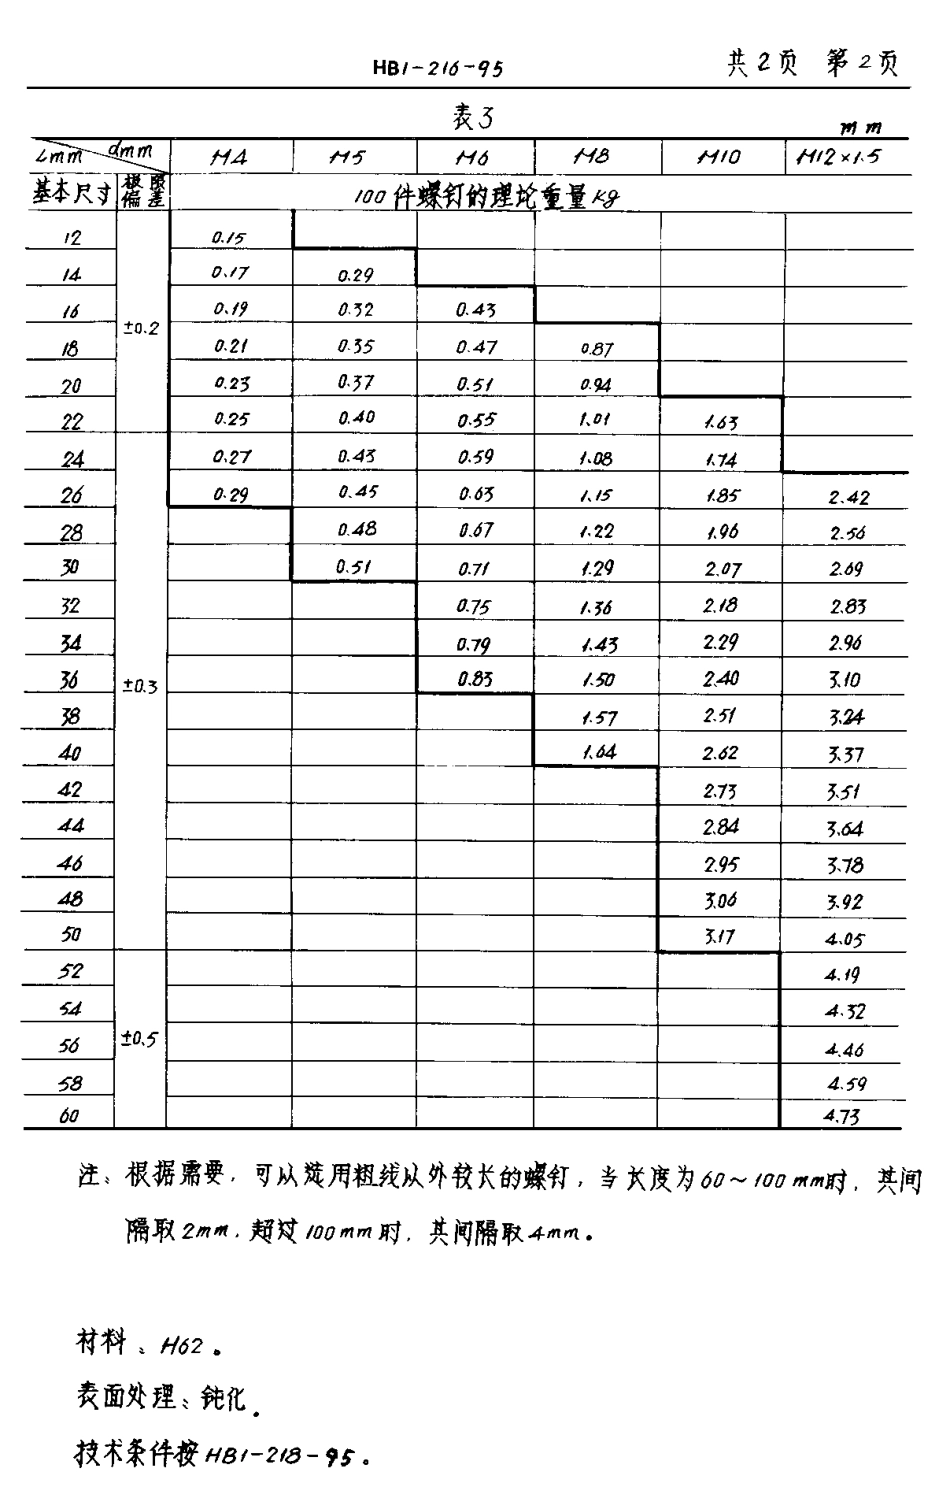 HB1-216-95 共2页 第2页
表3
mm
Lmm dmm M4 M5 M6 M8 M10 M12×1.5
基本尺寸 极限偏差 100件螺钉的理论重量kg
12 0.15
14 0.17 0.29
16 0.19 0.32 0.43
±0.2
18 0.21 0.35 0.47 0.87
20 0.23 0.37 0.51 0.94
22 0.25 0.40 0.55 1.01 1.63
24 0.27 0.43 0.59 1.08 1.74
26 0.29 0.45 0.63 1.15 1.85 2.42
28 0.48 0.67 1.22 1.96 2.56
30 0.51 0.71 1.29 2.07 2.69
32 0.75 1.36 2.18 2.83
34 0.79 1.43 2.29 2.96
36 ±0.3 0.83 1.50 2.40 3.10
38 1.57 2.51 3.24
40 1.64 2.62 3.37
42 2.73 3.51
44 2.84 3.64
46 2.95 3.78
48 3.06 3.92
50 3.17 4.05
52 4.19
54 4.32
56 ±0.5 4.46
58 4.59
60 4.73
注:根据需要,可以选用粗线以外较长的螺钉,当长度为60~100mm时,其间
隔取2mm.超过100mm时,其间隔取4mm。
材料:H62。
表面处理:钝化.
技术条件按HB1-218-95。